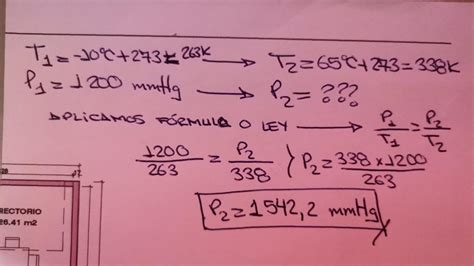 T₁=-10ºC+273= 263K → T₂=65ºC+273=338K
P₁=1200 mmHg → P₂=???
APLICAMOS FÓRMULA O LEY → P₁/T₁ = P₂/T₂
1200/263 = P₂/338 } P₂=338x1200/263
P₂=1542,2 mmHg
RECTORIO
26.41 m2